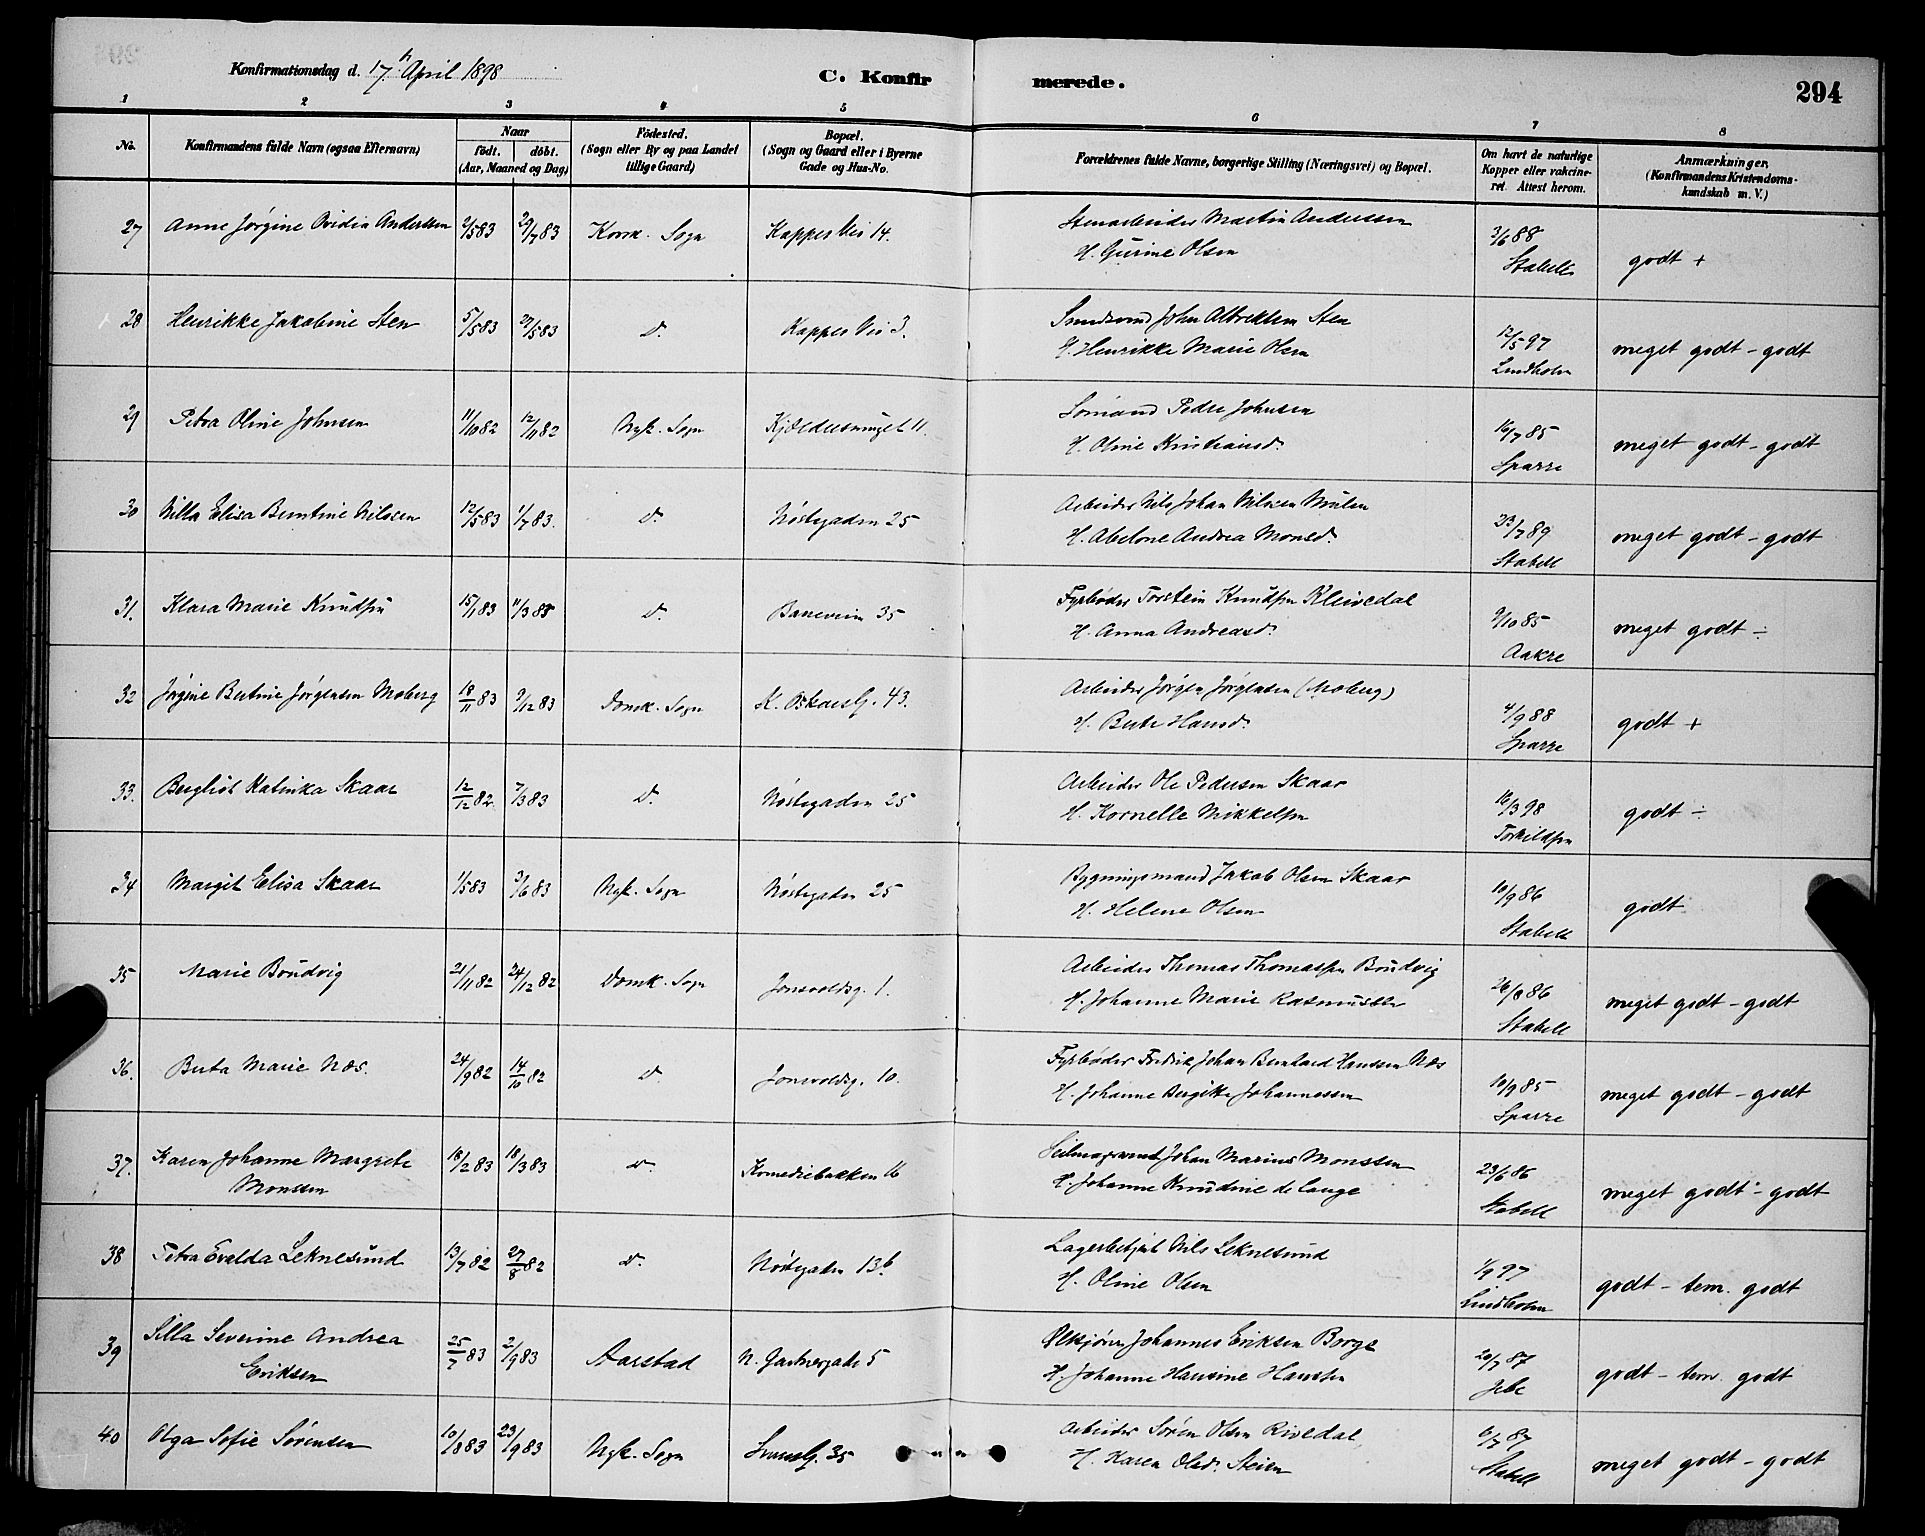 Konfirmationsdag d. 17 April 1898
C. Konfirmerede.
294
1 2 3 4 5 6 7 8
No.
Konfirmandens fulde Navn (ogsaa Efternavn)
Naar
født. døbt.
(Aar, Maaned og Dag)
Fødested.
(Sogn eller By og paa Landet
tillige Gaard)
Bopæl.
(Sogn og Gaard eller i Byerne
Gade og Hus-No.
Forældrenes fulde Navne, borgerlige Stilling (Næringsvei) og Bopæl.
Om havt de naturlige
Kopper eller vakcine-
ret. Attest herom.
Anmærkninger,
(Konfirmandens Kristendoms-
kundskab m. V.)
27 Anne Jørgine Ovidia Anderssen 2/5 83 29/7 83 Korsk. Sogn Kappes Vei 14. Stenarbeider Martin Anderssen
H. Gurine Olsen
3/6 88
Stabell
godt +
28 Henrikke Jakobine Sten 5/5 83 27/5 83 D. Kappes Vei 3. John Albrektsen Sten
H. Henrikke Marie Olsen
12/5 97
Lindholm
meget godt - godt
29 Petra Oline Johnsen 11/10 82 12/11 82 Nyk. Sogn 11. Sømand Peder Johnsen
H. Oline Kristiansd.
16/7 85
Sparre
meget godt - godt
30 Nilla Elisa Berntine Nilssen 12/5 83 1/7 83. D. Nøstegaden 25 Arbeider Nils Johan Nilssen
H. Abelone Andrea Monsd.
23/7 89
Stabell
meget godt - godt
31. Klara Marie Knudsen 15/1 83 11/3 83 D. Baneveien 35 Fyrbøder Torstein Knudsen Kleivedal
H. Anna Andreasd.
9/10 85
Aakre
meget godt ÷
32 Jørgine Bertine Jørgensen Moberg 18/11 83 9/12 83 Domk. Sogn K. Oskarsg. 43. Arbeider Jørgen Jørgensen (Moberg)
H. Berte Hansd.
4/9 88
Sparre
godt +
33. Bergliot Katinka Skaar 12/12 82 7/3 83 D. Nøstegaden 25 Arbeider Ole Pedersen Skaar
H. Kornelle Mikkelsen
16/3 98
Torkildsen
godt ÷
34 Margit Elisa Skaar 1/5 83 3/6 83 Nyk. Sogn Nøstegaden 25 Bygningsmand Jakob Olsen Skaar
H. Helene Olsen
10/9 86
Stabell
godt
35 Marie Boudvig 21/11 82 24/12 82 Domk. Sogn Jonsvoldsg. 1. Arbeider Thomas Thomassen Boudvig
H. Johanne Marie Rasmussen
26/8 86
Stabell
meget godt - godt
36. Berta Marie Næs. 24/9 82 14/10 82 D. Jonsvoldsg. 10. Fyrbøder Fredrik Johan Bernhard Hanssen Næs
H. Johanne Bergitte Johannessen
10/9 85
Sparre
meget godt - godt
37. Karen Johanne Margrete
Monssen
18/2 83 18/3 83 D. Komediebakken 16 Seilmagersvend Johan Marius Monssen
H. Johanne Knudine de Lange
23/6 86
Stabell
meget godt - godt
38 Petra Evalda Leknesund 13/7 82 27/8 82 D. Nøstegaden 13b. Lagerbetjent Nils Leknesund
H. Oline Olsen
1/9 97
Lindholm
godt - tem. godt
39 Silla Severine Andrea
Eriksen
25/7 83 2/9 83 Aarstad N. Gartnergade 5 Ølkjører Johannes Eriksen Borge
H. Johanne Hansine Hanssen
20/7 87
Jebe
godt - tem. godt
40 Olga Sofie Sørensen 10/8 83 23/9 83 Nyk. Sogn 35 Arbeider Søren Olsen Rivedal
H. Karen Olsd. Steien
6/7 87
Stabell
meget godt - godt